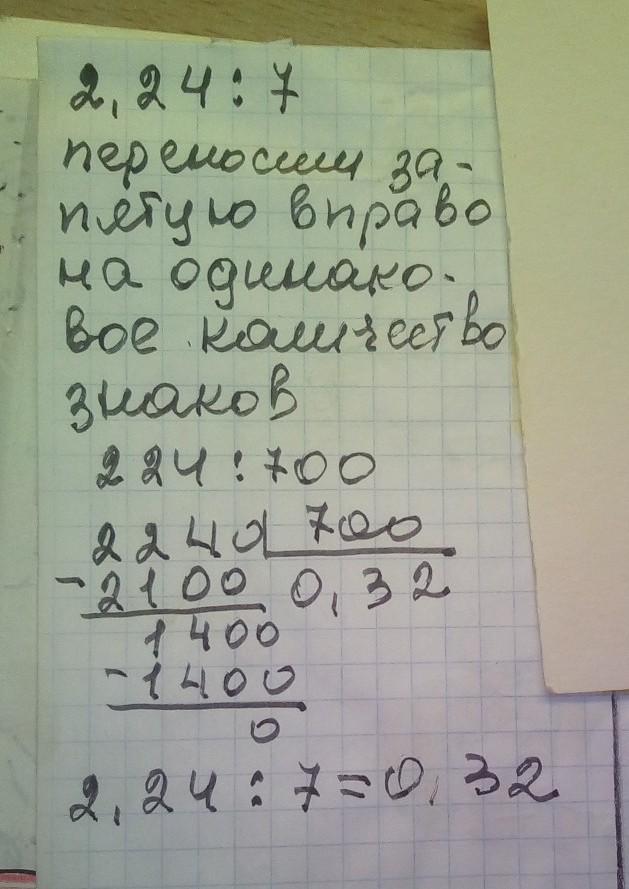 2,24 : 7
переносим за-
пятую вправо
на одинако-
вое количество
знаков
224 : 700
2240 700
- 2100 0,32
1400
- 1400
0
2,24 : 7 = 0,32